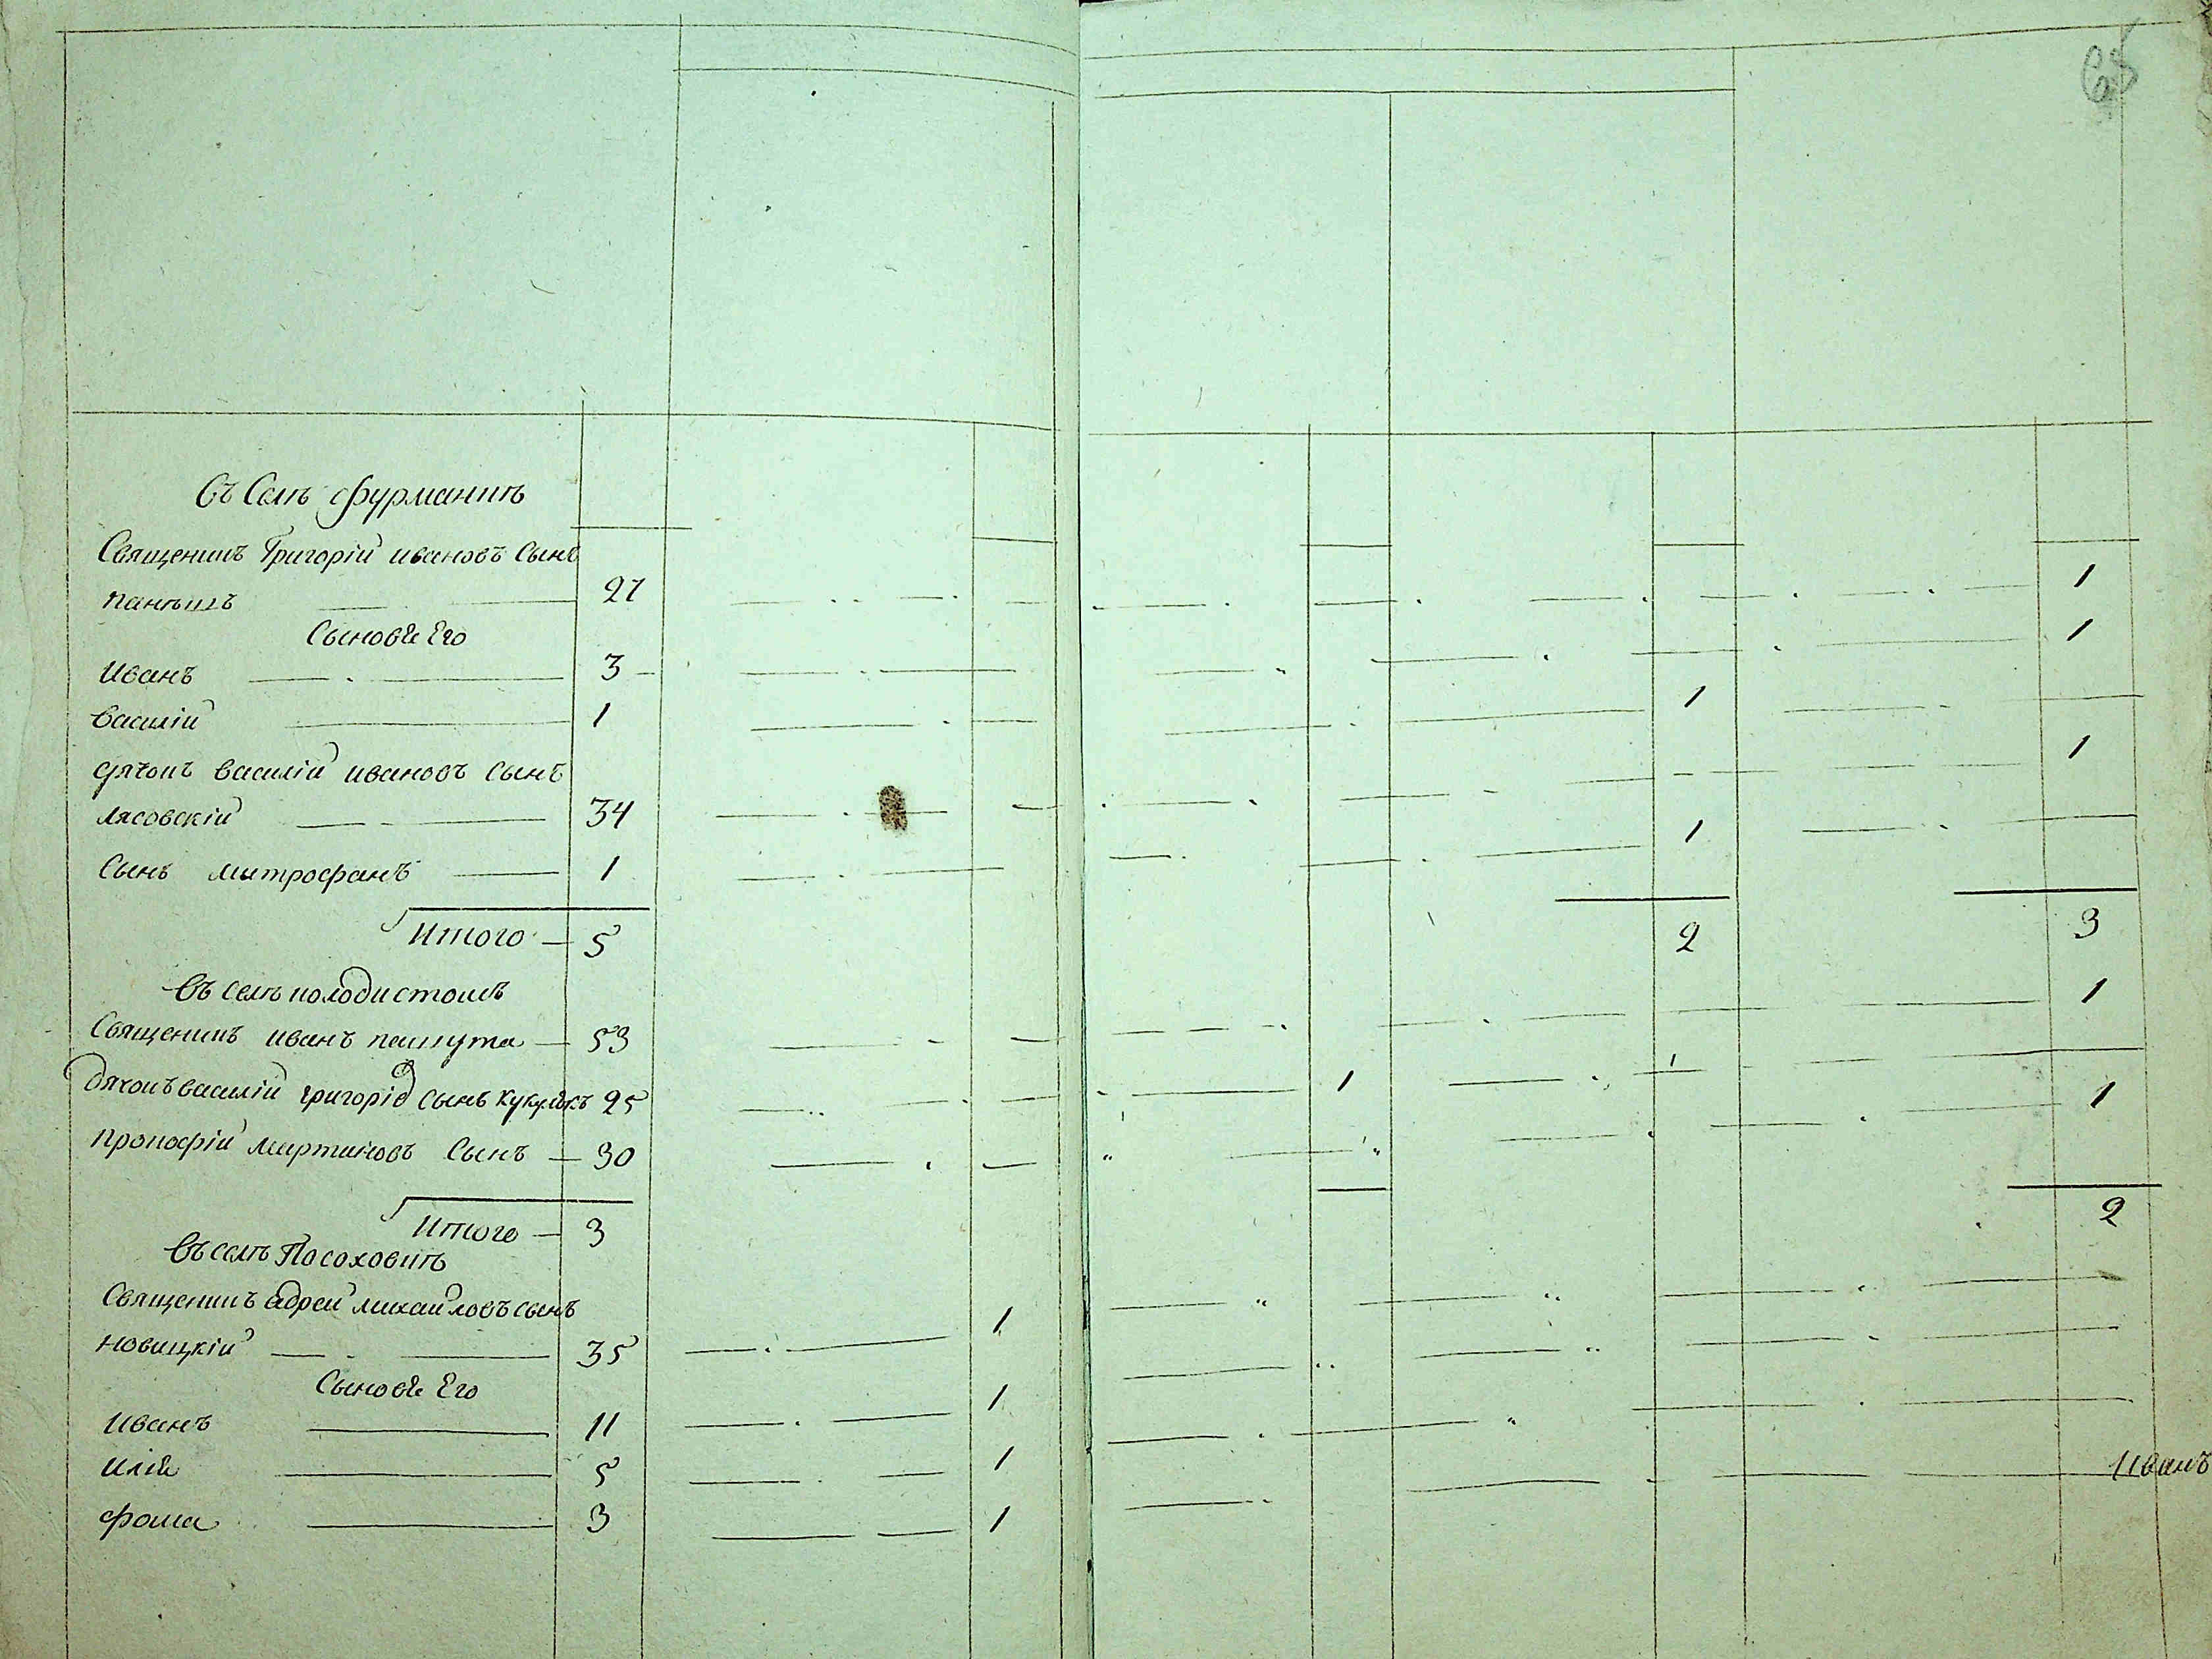 65
Въ Селѣ Фурманкѣ
Священикъ Григорій ивановъ Сынъ
27 1
Сыновѣ Его
Иванъ 3 1
Василій 1 1
дячокъ василій ивановъ Сынъ
лясовскій 34 1
Сынъ митрофанъ 1 1
Итого 5 2 3
Въ селѣ колодистомъ
Священикъ иванъ 53 1
Дячокъ василій григоріѐв сынъ 25 1
прокофій мартиновъ Сынъ 30 1
Итого 3 2
Въ селѣ Посоховкѣ
Священикъ адрей михайловъ сынъ
новицкій 35 1
Сыновѣ Его
Иванъ 11 1
илія 5 1
фома 3 1
Иванъ